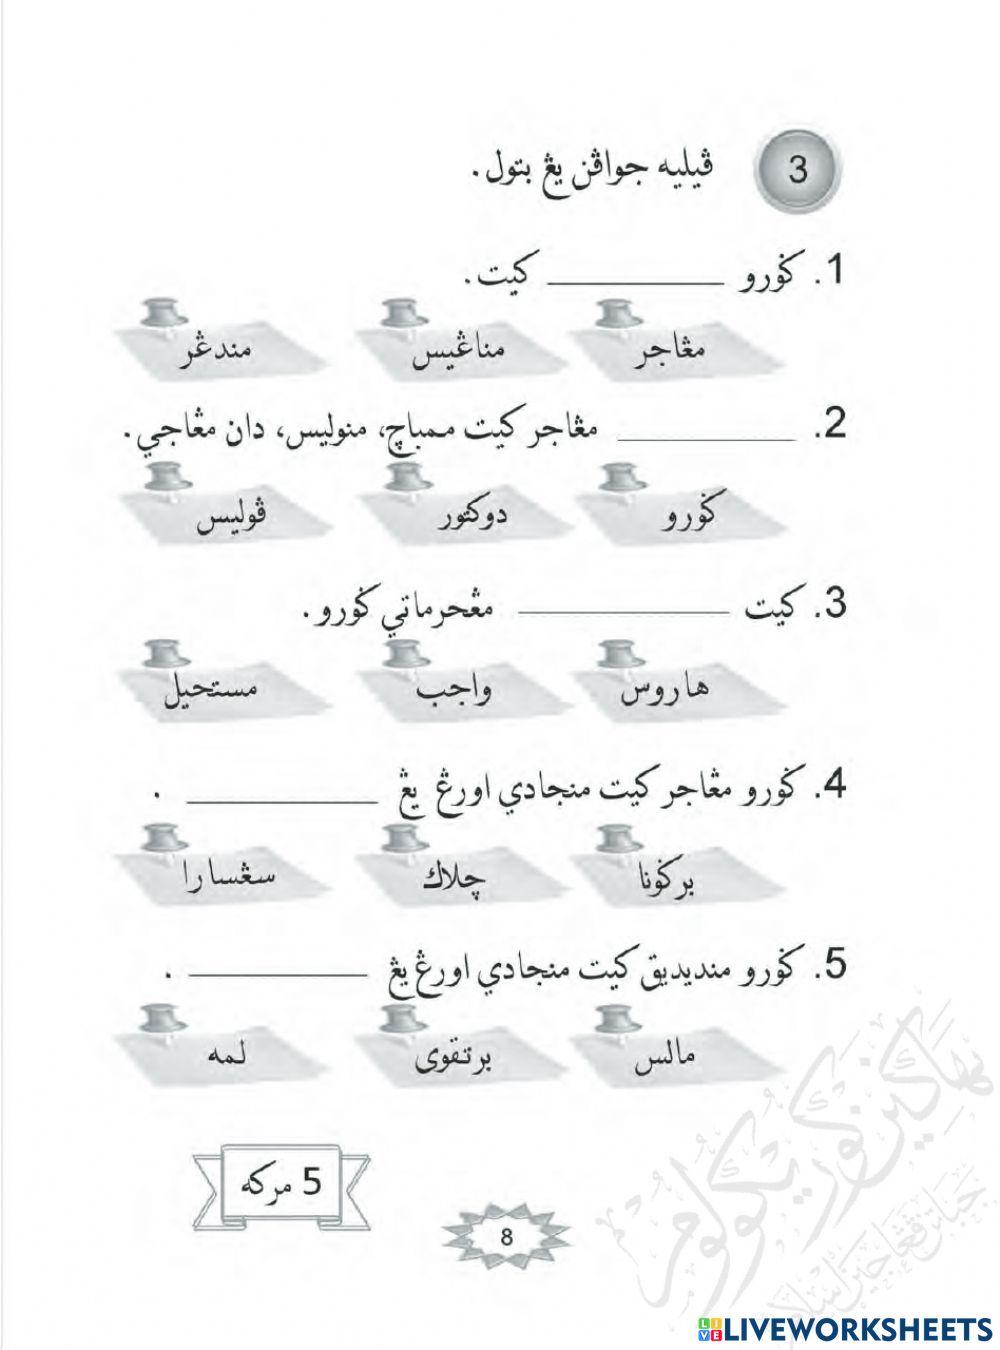 3 ڤيليه جواڤن يڠ بتول.
1. ݢورو ____________ كيت.
مڠاجر مناڠيس مندڠر
2. ____________ مڠاجر كيت ممباچ، منوليس، دان مڠاجي.
ݢورو دوكتور ڤوليس
3. كيت ____________ مڠحرماتي ݢورو.
هاروس واجب مستحيل
4. ݢورو مڠاجر كيت منجادي اورڠ يڠ ____________ .
برݢونا چلاك سڠسارا
5. ݢورو منديديق كيت منجادي اورڠ يڠ ____________ .
مالس برتقوى لمه
5 مركه
8
LIVEWORKSHEETS